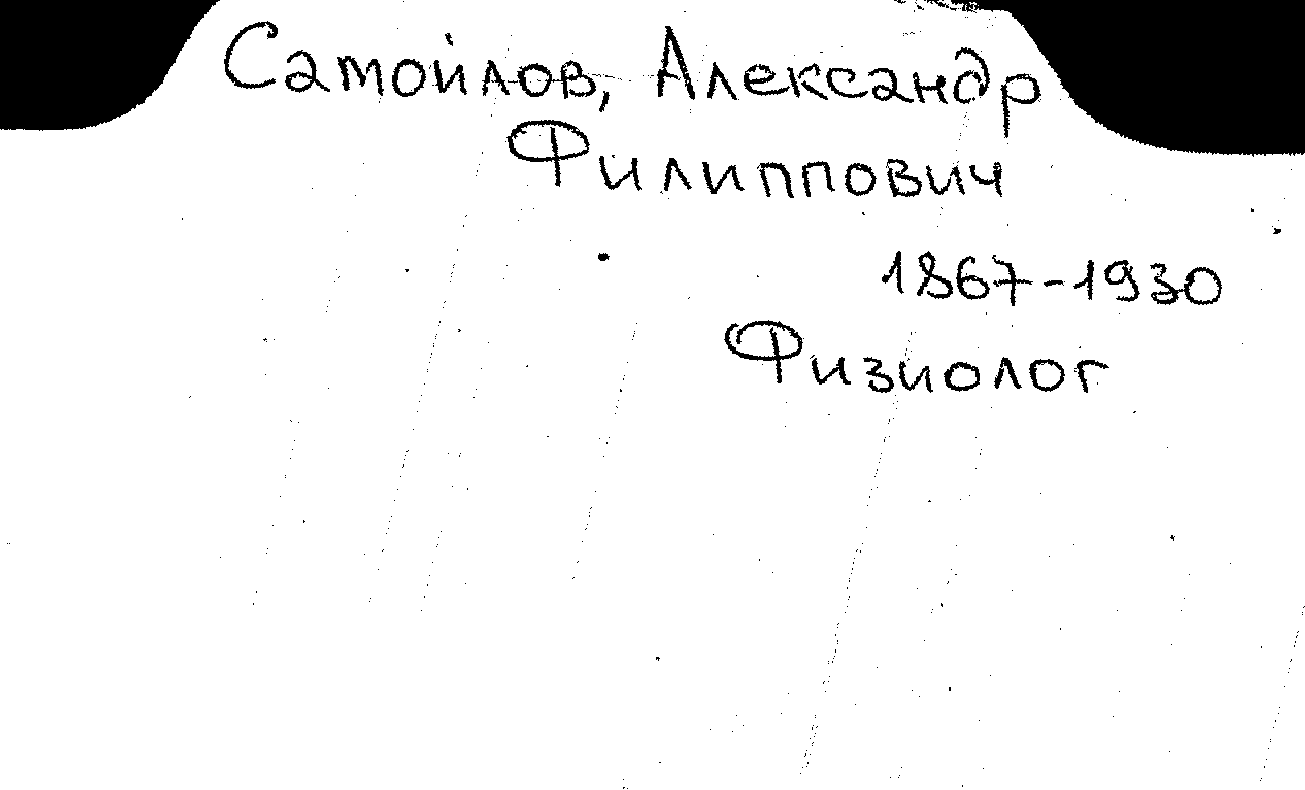 Самойлов, Александр
Филиппович
1867-1930
Физиолог